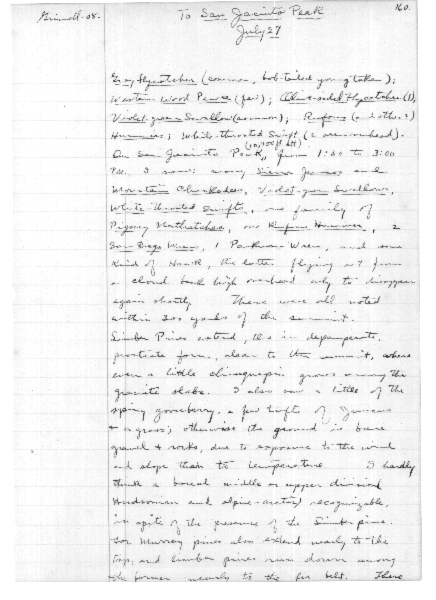 Grinnell-08.
To San Jacinto Peak
160.
July 27
Gray flycatcher (common, bob-tailed young taken);
Western Wood Pewee (fair); Olive-sided Flycatcher (1),
Violet-green Swallow (common); Rufous (& other?)
Hummers; White-throated Swift (2 seen overhead).
(10,805 ft alt)
On San Jacinto Peak, from 1:30 to 3:00
P.M. I saw: many Sierra Juncos and
Mountain Chickadees, Violet-green Swallows,
White-throated Swifts, one family of
Pigmy Nuthatches, one Rufous Hummer, 2
San Diego Wrens, 1 Parkman Wren, and some
kind of Hawk, the latter flying out from
a cloud bank high overhead only to disappear
again shortly. These were all noted
within 200 yards of the summit.
Limber Pines extend, tho in depauperate,
prostrate form, clear to the summit, where
even a little chinquapin grows among the
granite slabs. I also saw a little of the
spiny gooseberry, a few tufts of Juncus
& a grass; otherwise the ground is bare
gravel & rocks, due to exposure to the wind
and slope than to temperature. I hardly
think a boreal middle or upper division
Hudsonian and alpine-arctic) recognizable,
in spite of the presence of the Limber pine.
For Murray pines also extend nearly to the
top, and limber pines run down among
the former nearly to the fir belt. There